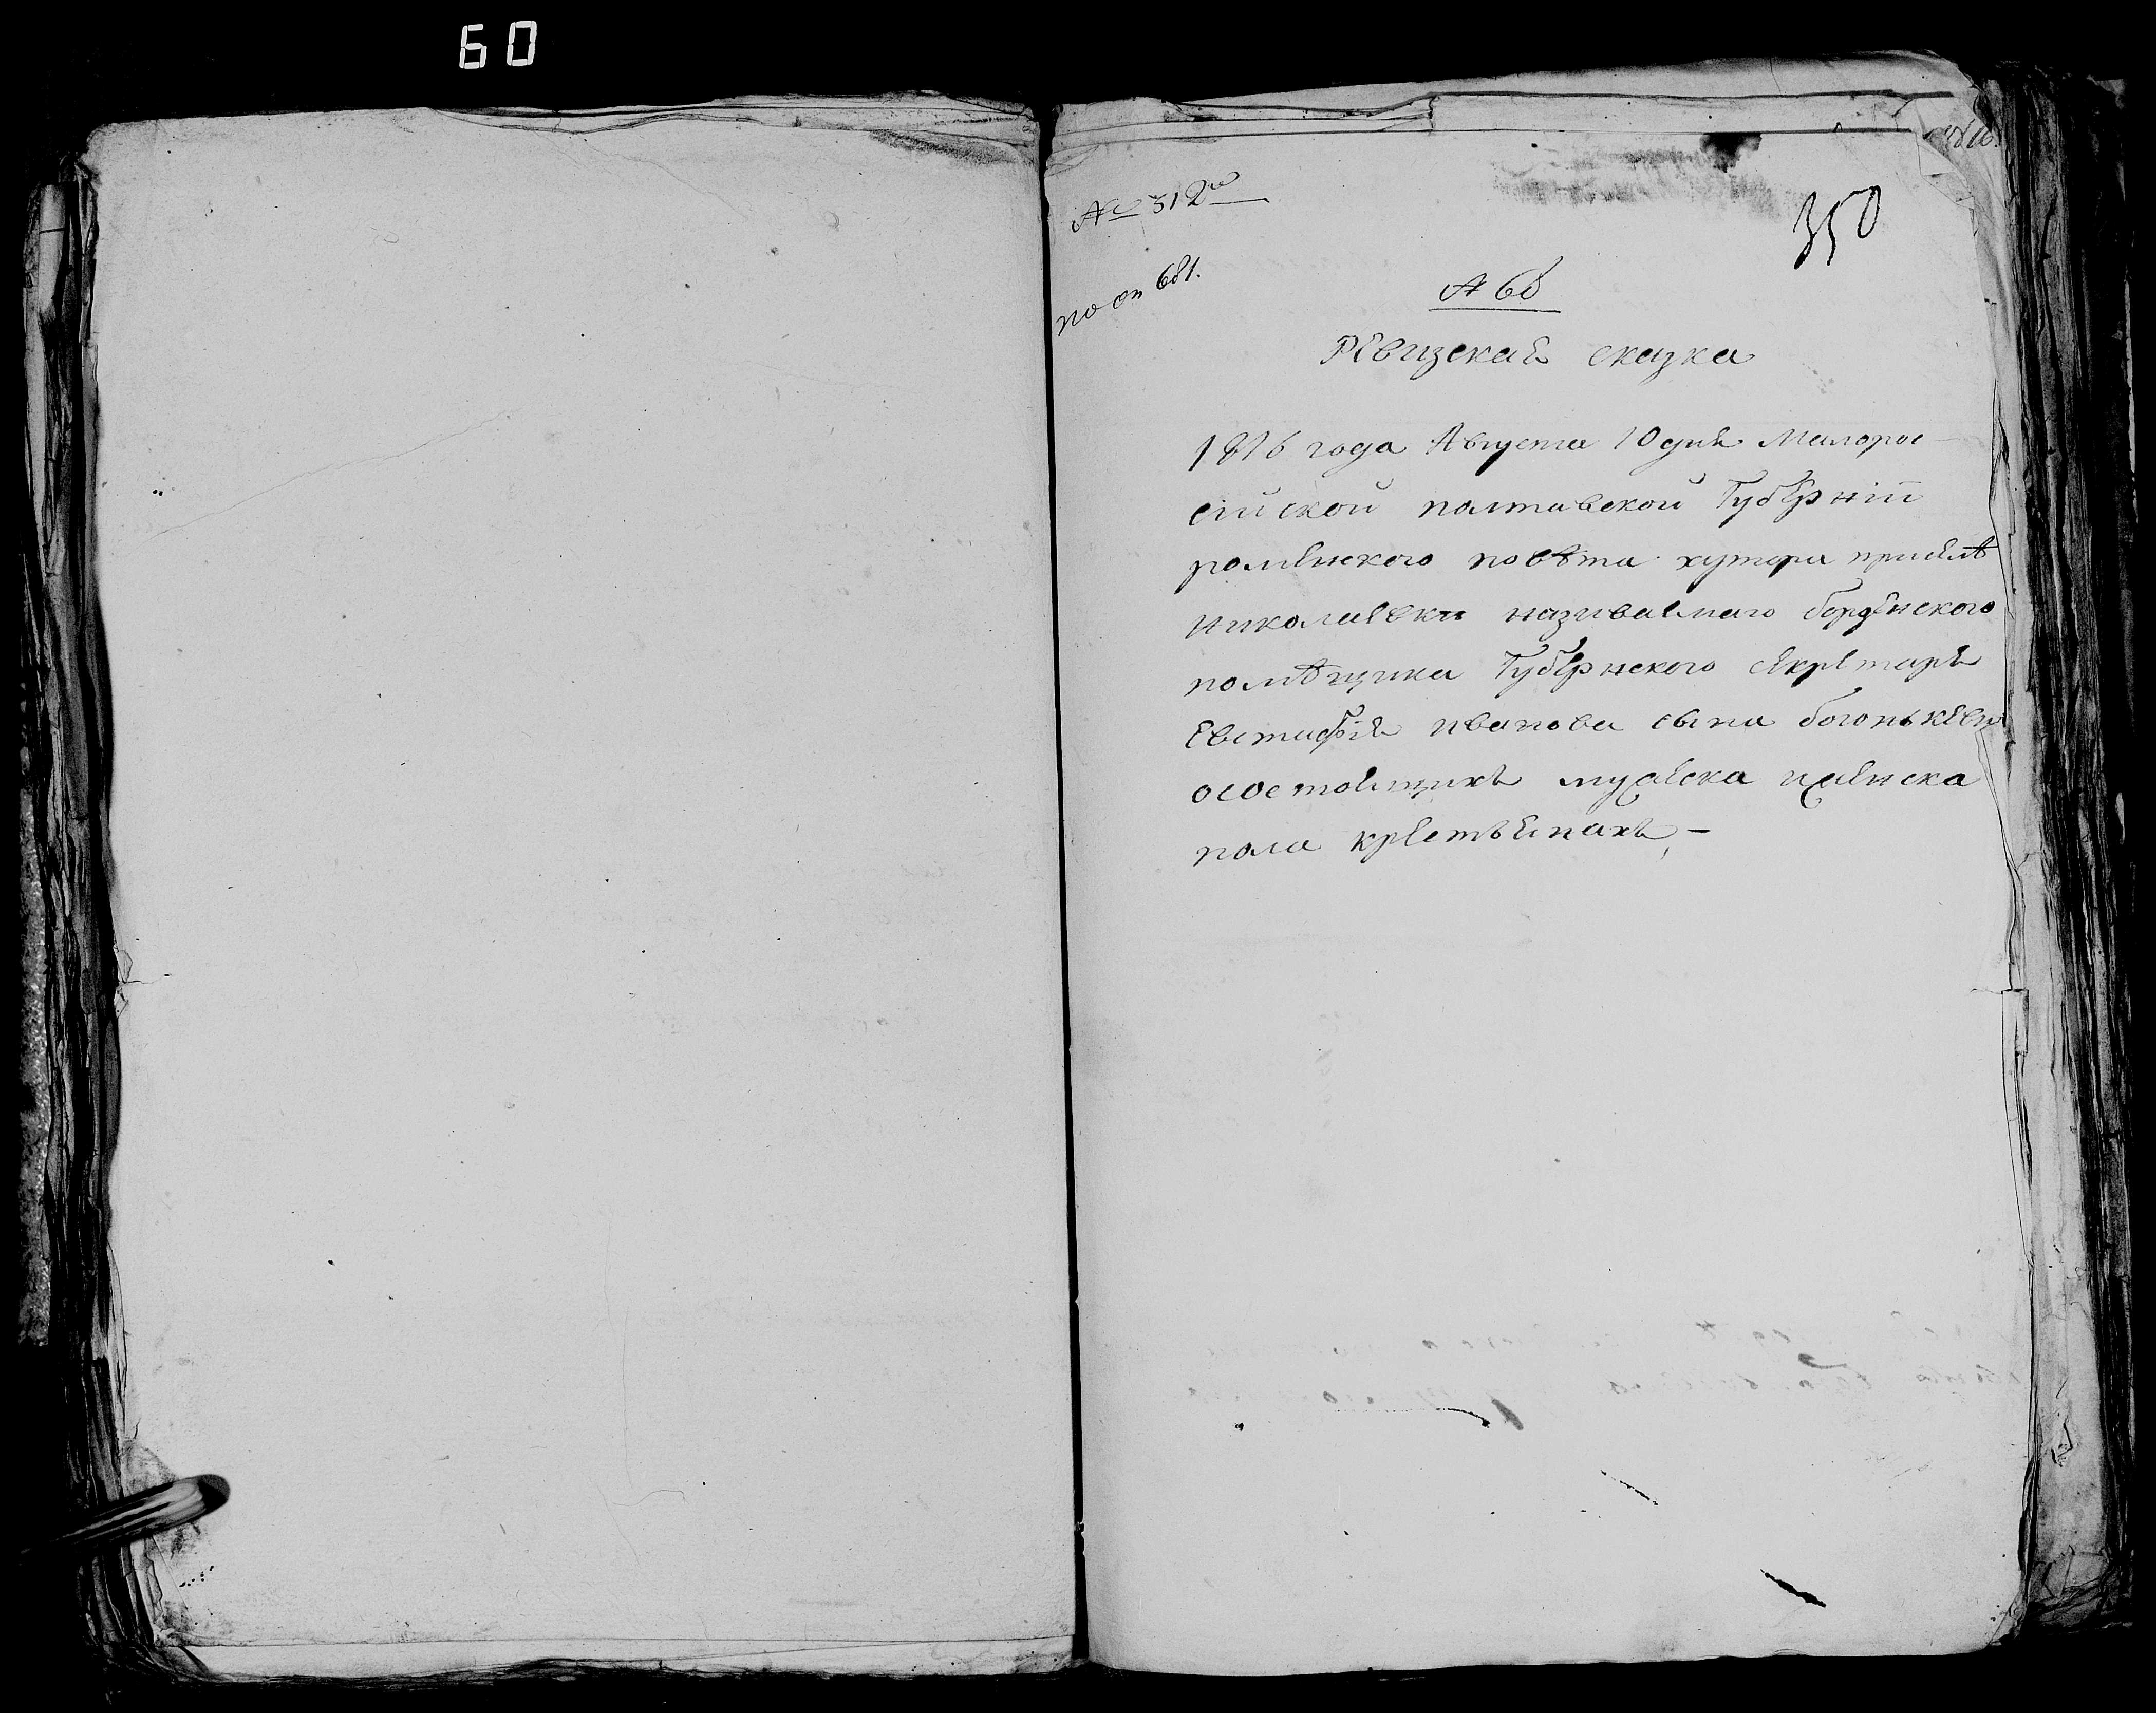 60
№ 312
по оп 681.
350
№ 68
Ревизская сказка
1816 года Августа 10 дня Малорос-
сийской полтавской Губерніи
роменского повѣта хутора приселѣ
николаевки називаемаго
помѣщика Губернского секретаря
Евстафія иванова сына
осостоящихъ мужеска иженска
пола крестьянахъ,-